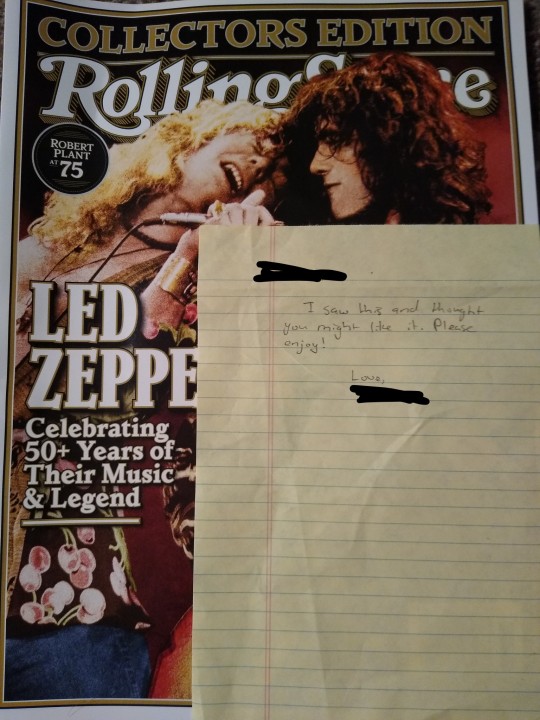 COLLECTORS EDITION
Rolling S e
ROBERT
PLANT
AT 75
LED
ZEPPE
Celebrating
50+ Years of
Their Music
& Legend
I saw this and thought
you might like it. Please
enjoy!
Love,